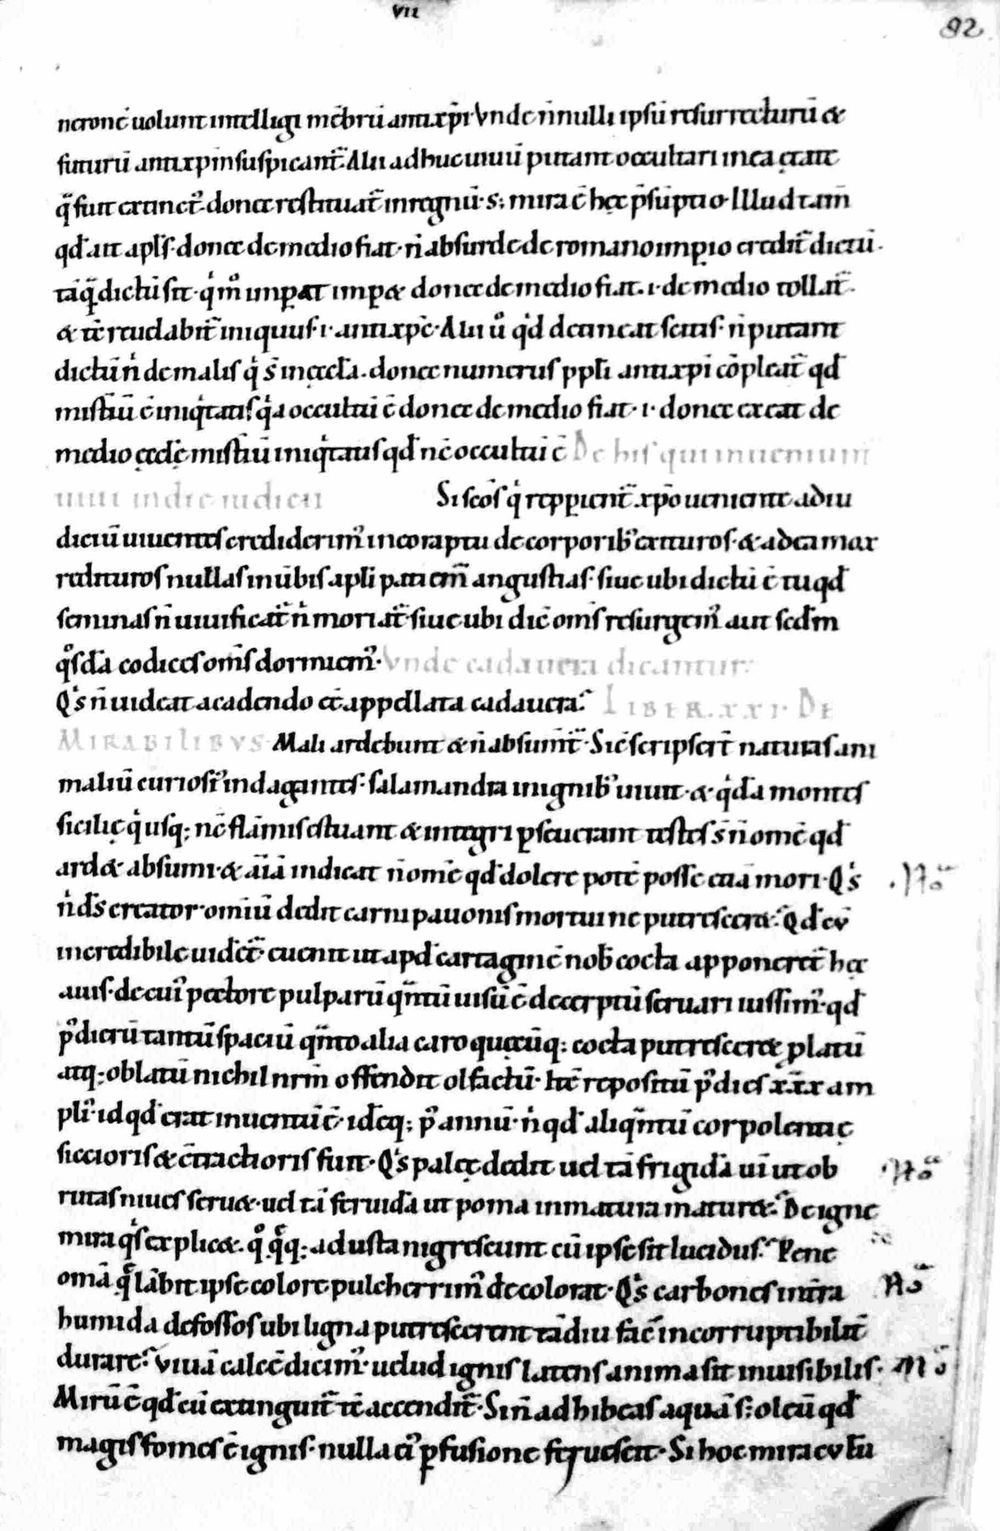 VII
82
neronē uolunt intelligi mēbrū antixp̄i Vnde ñnulli ipsū resurrecturū &
futurū antixp̄m suspicant̄ Alii adhuc uiuū putant occultari in ea ętate
q̄ fuit extinct᷒ donec restituat̄ in regnū · s; mira ē hęc p̄sūptio · Illud tam̄
qd̄ ait apl̄s · donec de medio fiat · ñ absurde de romano imꝑio credit̄ dictū ·
tāq̄ dictū sit · q̇ m̊ imperat imper& donec de medio fiat · i · de medio tollat̄ ·
& tē reuelabit̄ iniquus · i · antixp̄c · Alii ů q̇d detineat scitis · ñ putant
dictū ñ de malis q̇ s̄ in ęccl̄a · donec numerus ppl̄i antixp̄i cōpleat̄ qd̄
misteriū ē iniq̇tatis q̇a occultū ē donec de medio fiat · i · donec exeat de
medio ęccl̄ę misteriū iniq̇tatis qd̄ nc̄ occultū ē De his qui inuenti
uiui in die iudicii Si sc̄os q̇ reppient̄ xp̄o ueniente ad iu
diciū uiuentes crediderim᷒ in eo raptu de corporib᷒ exituros · & ad ea mox
redituros nullas in ūbis apl̄i patiem̄ angustias · siue ubi dictū ē tu qd̄
seminas ñ uiuificat̄ ñ moriat̄ · siue ubi dic̄ om̄s resurgem᷒ aut scd̄m
q̊sdā codices om̄s dormiem᷒ · Vnde cadauera dicantur
Q̇s ñ uideat a cadendo ēē appellata cadauera · LIBER · XXI · DE
MIRABILIBVS · Mali ardebunt & ñ absumt̄ · Sic̄ scripsert̄ naturas ani
maliū curiosi᷒ indagantes · salamandra in ignib᷒ uiuit · & q̇dā montes
sicilię q̇ usq; nc̄ flāmis estuant & integri ꝑseuerant testes s̄ ñ omē qd̄
ard& absumi · & aīa indicat ñ omē qd̄ dolere potē posse etiā mori · Q̇s
ñ ds̄ creator omiū dedit carni pauonis mortui ne putrescer& · Qd̄ cū
incredibile uider&̄ euenit ut apd̄ cartaginē nob̄ cocta apponeret̄ hęc
auis · de cui᷒ pectore pulparū q̄ntū uisū ē decerptū seruari iussim᷒ · qd̄
p᷒ dierū tantū spaciū q̄nto alia caro quęcūq; cocta putrescer& ꝓlatū
atq; oblatū nichil nr̄m offendit olfactū · Itē repositū p᷒ dies xxx am
pli᷒ id qd̄ erat inuentū ē · idēq; p᷒ annū · ñ qd̄ aliq̄ntū corpolentię
siccioris & c̄tractioris fuit · Q̇s palęę dedit uel tā frigidā uī ut ob
rutas niues seru& · uel tā feruidā ut poma inmatura matur& · De igne
mira q̇s explic& · q̊ q̄q; adusta nigrescunt cū ipse sit lucidus · Pene
omā q̄ lābit ipse colore pulcherrim᷒ decolorat · Q̇s carbones infra
humida defossos ubi ligna putrescerent tādiu fac̄ incorruptibilit̄
durare · Viuā calcē dicim᷒ · uelud ignis latens anima sit inuisibilis ·
Mirū ē qd̄ cū extinguit̄ tc̄ accendit̄ · Si ñ adhibeas aquā s; oleū qd̄
magis fomes ē ignis · nulla ei᷒ ꝑfusione feruescit · Si hoc miraculū